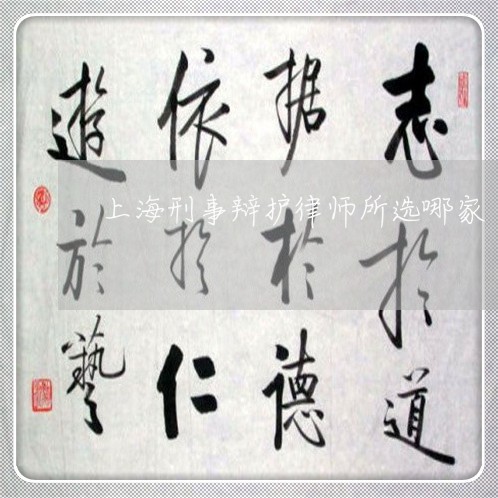 志於道
据於德
依於仁
遊於藝
上海刑事辩护律师所选哪家